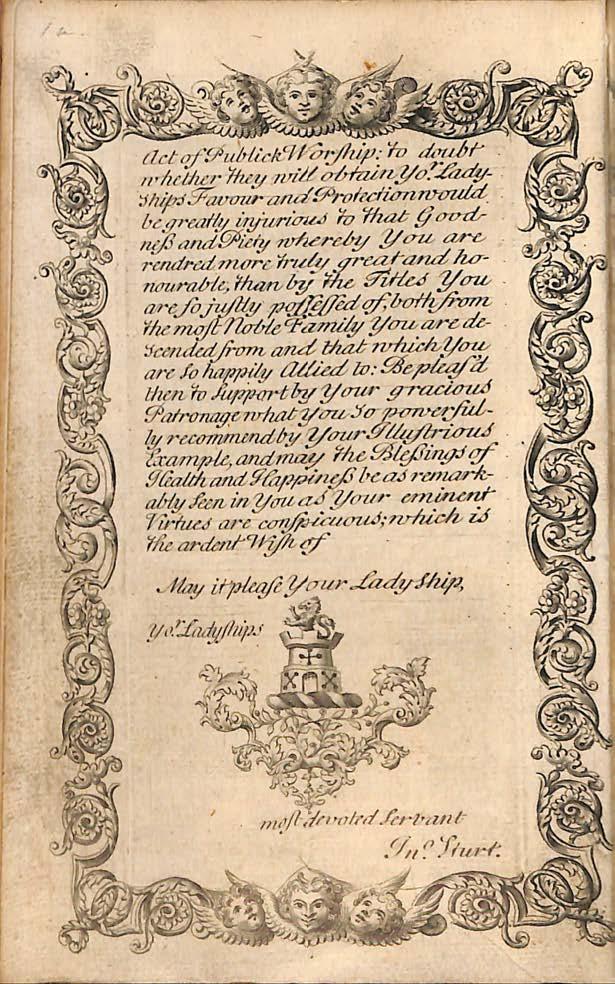 Act of Publick Worship: to doubt
whether they will obtain Yoʳ. Lady-
ships Favour and Protection would
be greatly injurious to that Good-
neſs and Piety whereby You are
rendred more truly great and ho-
nourable, than by the Titles You
are ſo juſtly poſſeſſed of, both from
the moſt Noble Family You are de-
scended from and that which You
are so happily Allied to: Be pleaſ'd
then to ſupport by Your gracious
Patronage what You so powerful-
ly recommend by Your Illuſtrious
Example, and may the Bleſsings of
Health and Happineſs be as remark-
ably ſeen in You as Your eminent
Virtues are conſpicuous; which is
the ardent Wiſh of
May it pleaſe Your Ladyship,
Yoʳ. Ladyſhips
moſt devoted ſervant
Jnº. Sturt.